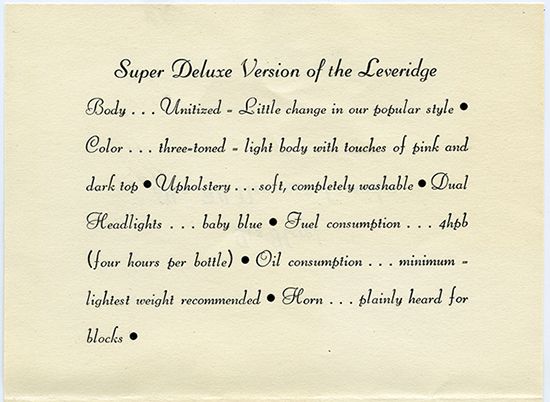 Super Deluxe Version of the Leveridge
Body . . . Unitized = Little change in our popular style ●
Color . . . three=toned = light body with touches of pink and
dark top ● Upholstery . . . soft, completely washable ● Dual
Headlights . . . baby blue ● Fuel consumption . . . 4hpb
(four hours per bottle) ● Oil consumption . . . minimum =
lightest weight recommended ● Horn . . . plainly heard for
blocks ●